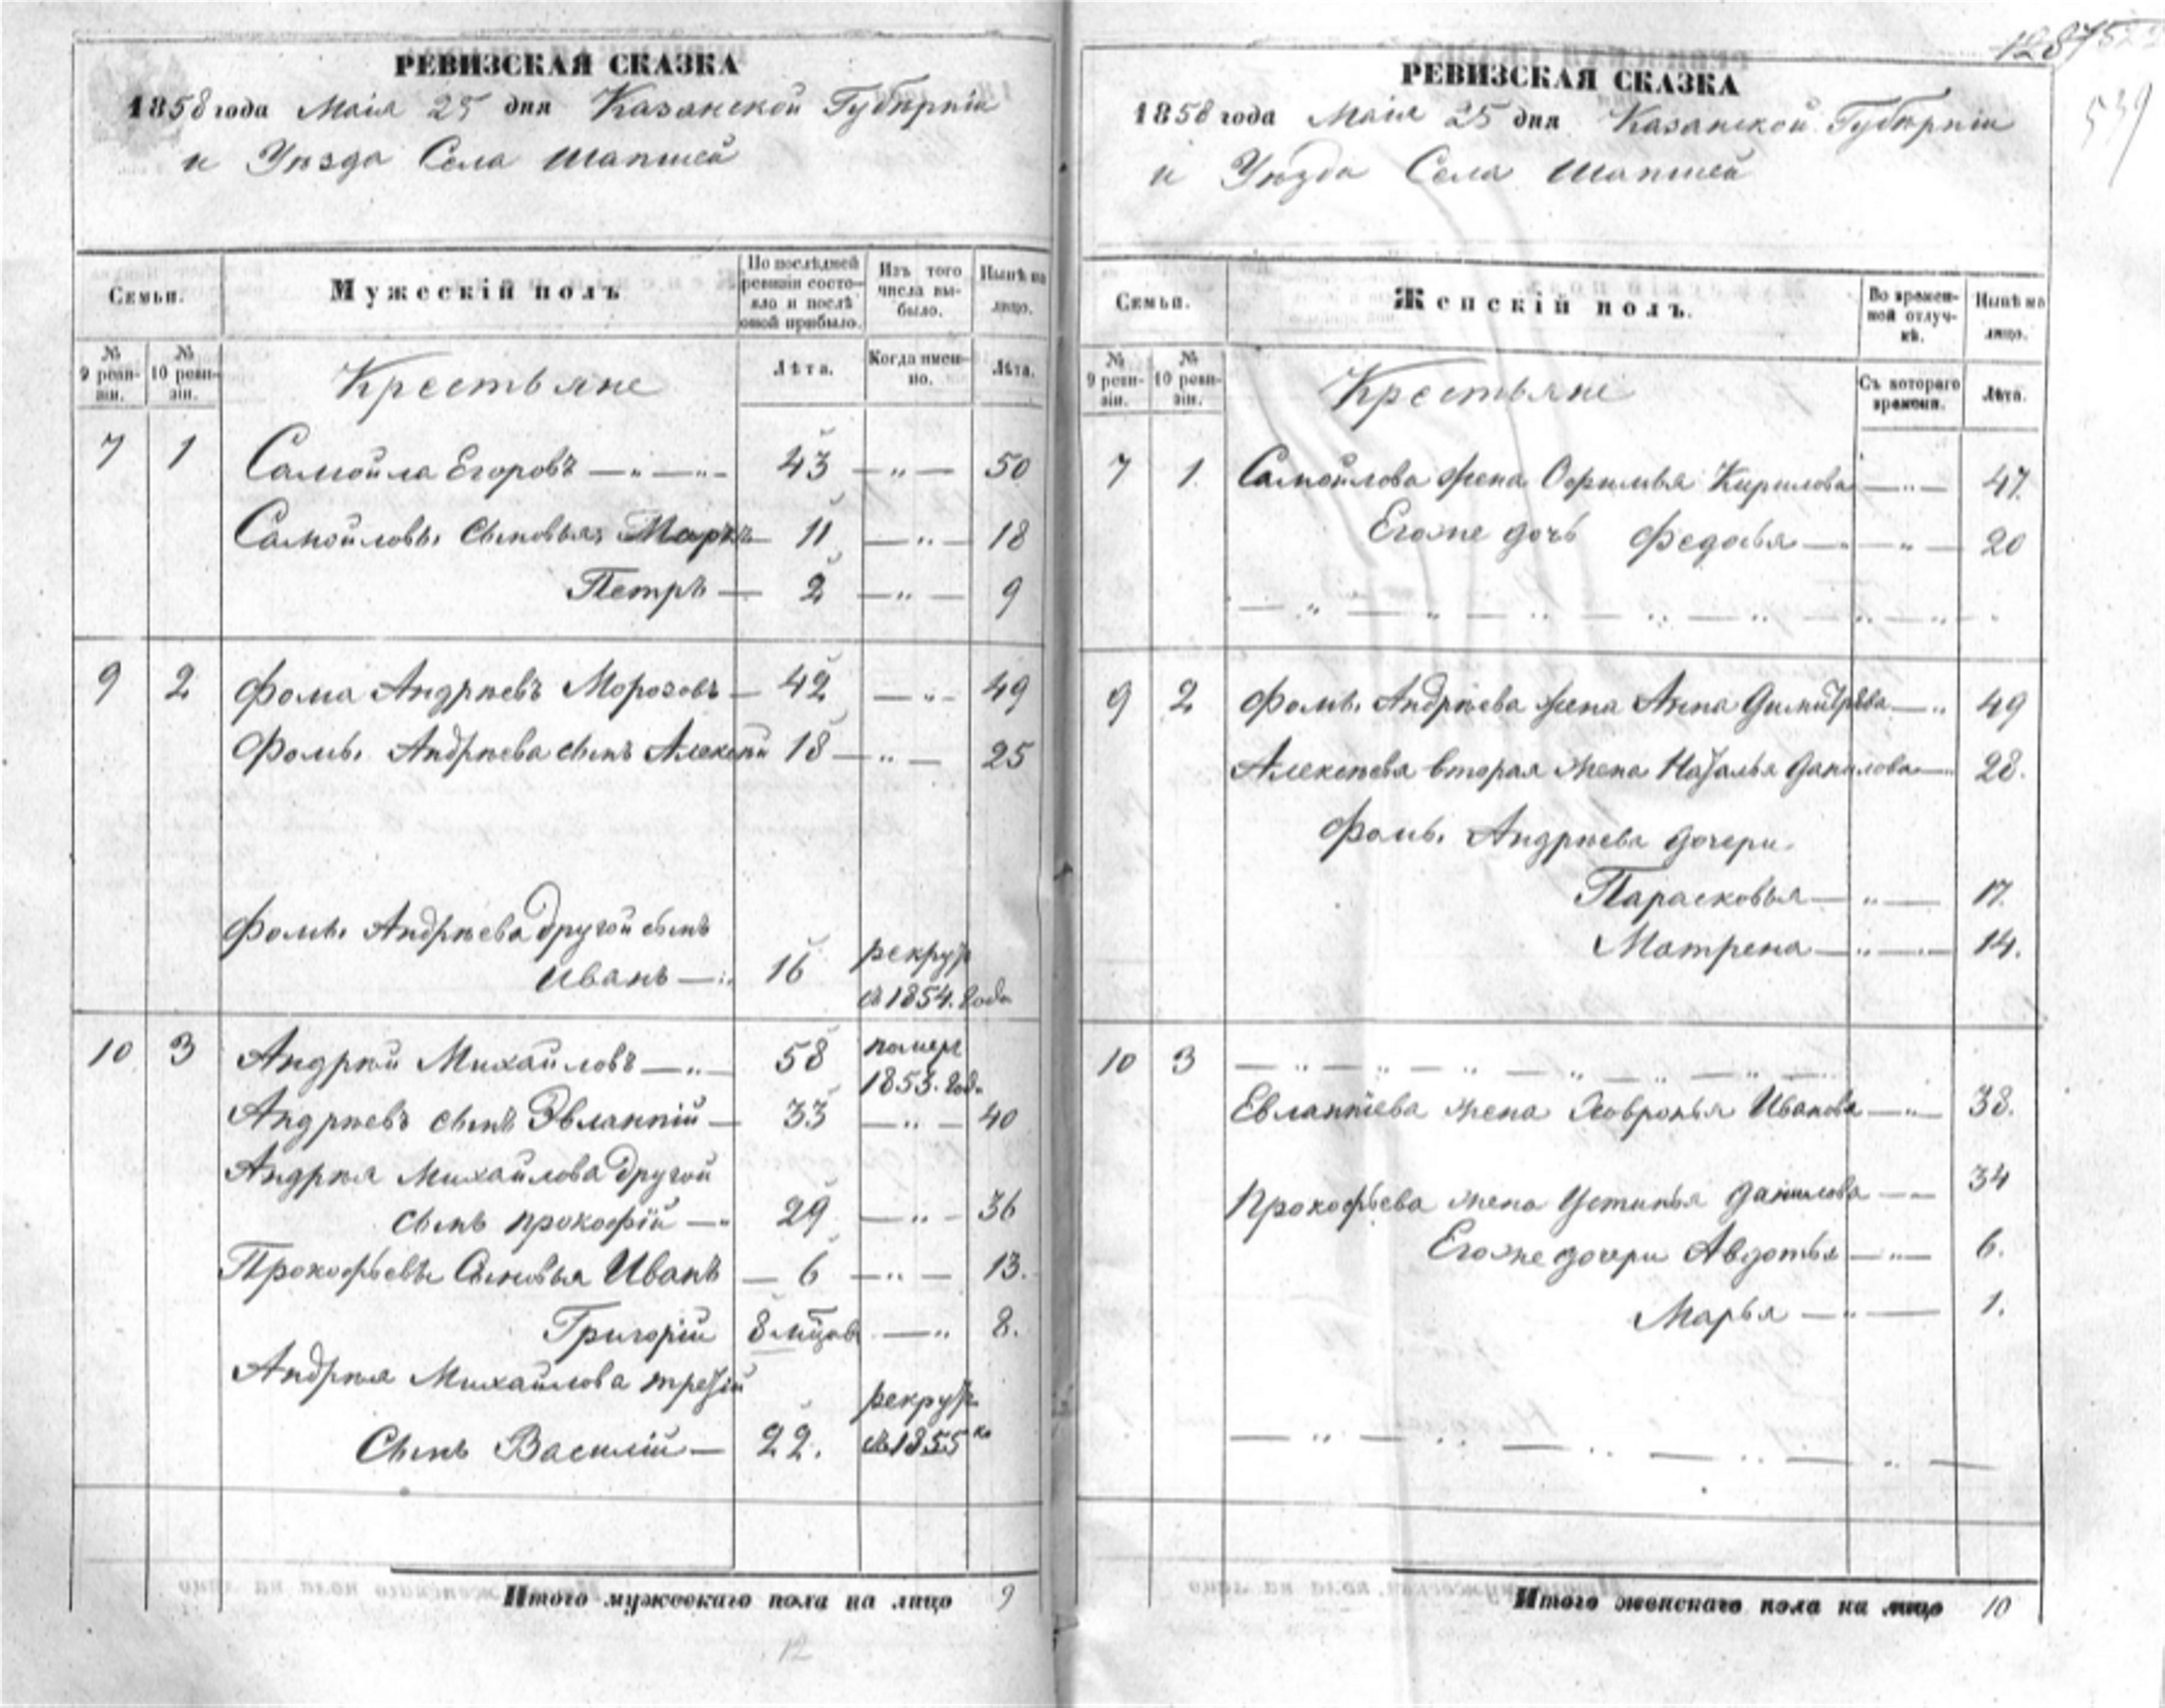 РЕВИЗСКАЯ СКАЗКА
1858 года Маія 25 дня Казанской Губерніи
и Уѣзда Села Шапшей
Семьи.
Мужескій полъ
По послѣдней ревизіи состояло и послѣ оной прибыло.
Изъ того числа выбыло.
Нынѣ на лицо.
№ 9 ревизіи.
№ 10 ревизіи.
Крестьяне
Лѣта.
Когда именно.
Лѣта.
7 1 Самойла Егоровъ — „ — „ - 43 — „ — 50
Самойловы сыновья, Маркъ — 11 — „ — 18
Петръ — 2 — „ — 9
9 2 Фома Андрѣевъ Морозовъ — 42 — „ - 49
Фомы Андрѣева сынъ Алексѣй 18 — „ — 25
Фомы Андрѣева другой сынъ
Иванъ — „ 16 рекрут
съ 1854. года
10 3 Андрѣй Михайловъ — „ — 58 помер
1853. год.
Андрѣевъ сынъ Эвлампій — 33 — „ — 40
Андрѣя Михайлова другой
сынъ Прокофій — „ 29 — „ - 36
Прокофьевы Сыновья Иванъ — 6 — „ — 13.
Григорій 8 мѣцов — „ 8.
Андрѣя Михайлова третій
Сынъ Василій — 22. рекрут
съ 1855 го
Итого мужескаго пола на лицо 9
12
1287
539
РЕВИЗСКАЯ СКАЗКА
1858 года Маія 25 дня Казанской Губерніи
и Уѣзда Села Шапшей
Семьи.
Женскій полъ.
Во временной отлучкѣ.
Нынѣ на лицо.
№ 9 ревизіи.
№ 10 ревизіи.
Крестьяне
Съ котораго времени.
Лѣта.
7 1. Самойлова жена Офимья Кирилова — „ — 47.
Егоже дочь Федосья — „ — 20
9 2 Фомы Андрѣева жена Анна Димитрева — „ 49
Алексѣева вторая жена Наталья Данилова — 28.
Фомы Андрѣева дочери.
Парасковья — „ — 17.
Матрена — „ — 14.
10 3 — „ — „ — „ — „ — „ — „ —
Евлампіева жена Ховронья Иванова — „ — 38.
Прокофьева жена Устинья Данилова — — 34
Егоже дочери Авдотья — „ — 6.
Марья — „ — 1.
Итого женскаго пола на лицо 10